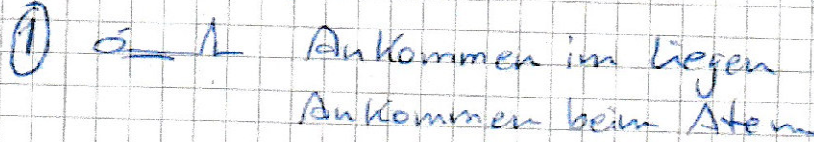 ① Ankommen im Liegen
Ankommen beim Atem